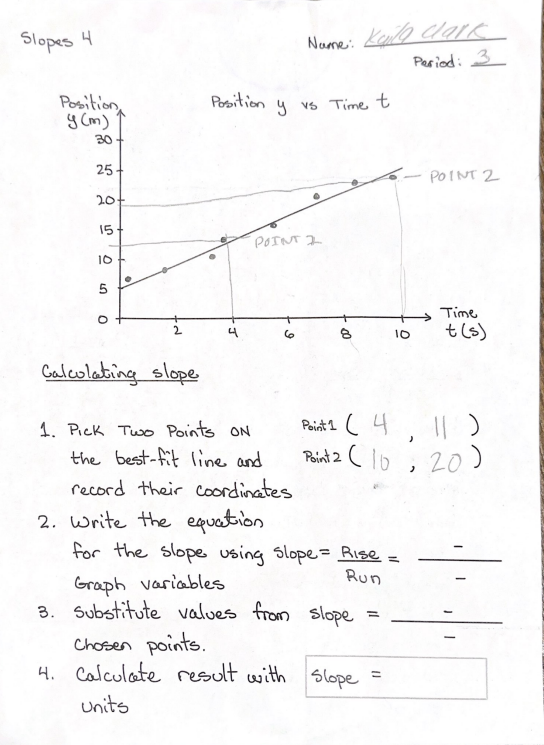 Slopes 4
Name: Kyila Clark
Period: 3
Position y vs Time t
Position
y (m)
30
25
POINT 2
20
15
POINT 1
10
5
0
2 4 6 8 10
Time
t (s)
Calculating slope
1. Pick Two Points ON Point 1 ( 4 , 11 )
the best-fit line and Point 2 ( 10 , 20 )
record their coordinates
2. Write the equation
for the slope using slope = Rise = -
Graph variables Run -
3. Substitute values from slope = -
chosen points. -
4. Calculate result with slope =
units